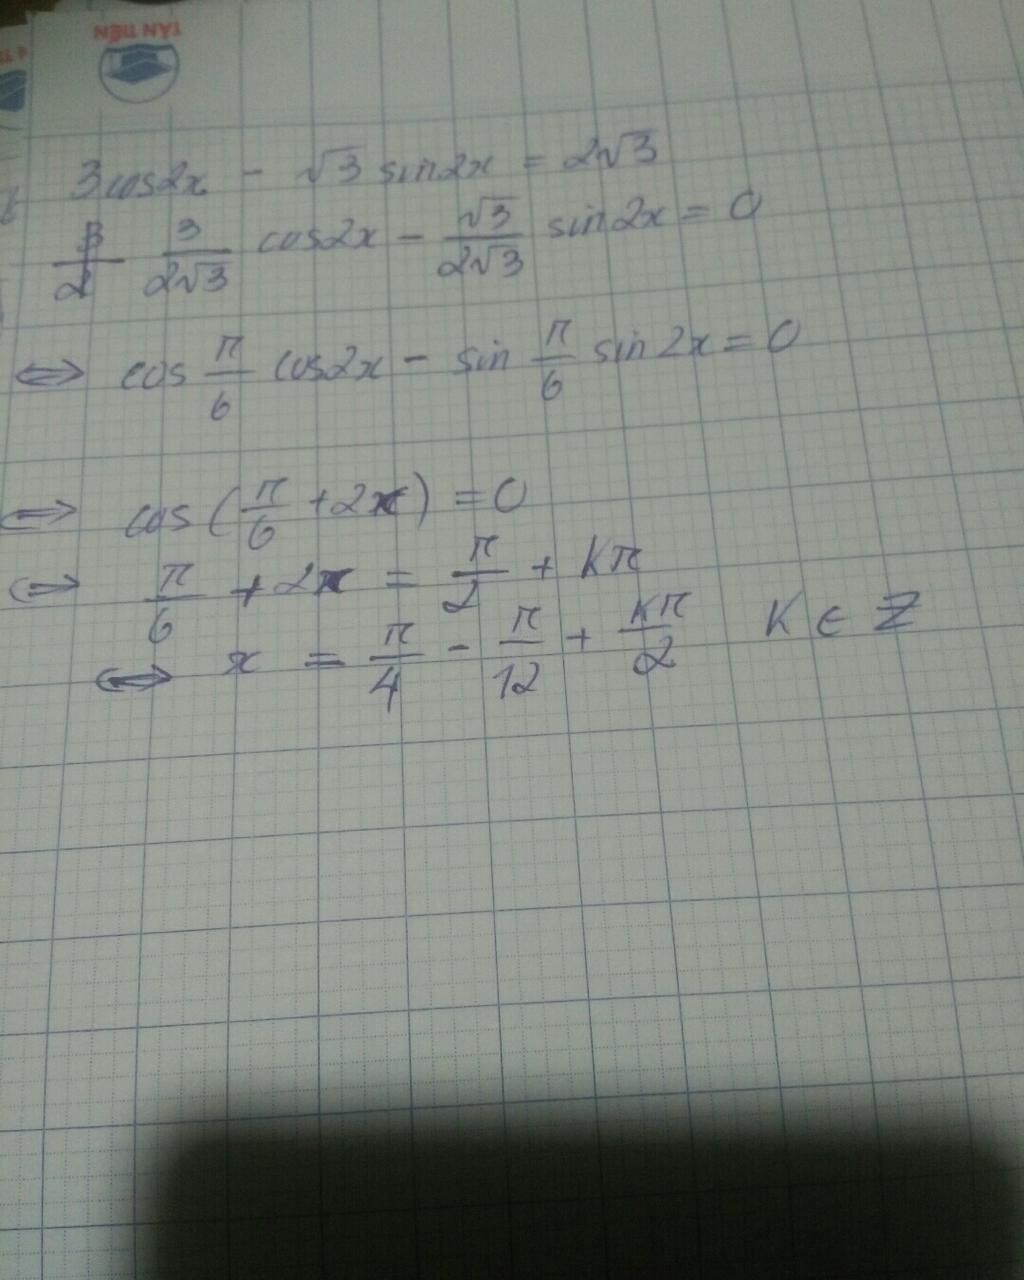 TÂN TIẾN
3cos2x - √3 sin2x = 2√3
3/(2√3) cos2x - √3/(2√3) sin2x = 0
⇔ cos π/6 cos2x - sin π/6 sin2x = 0
⇔ cos(π/6 + 2x) = 0
⇔ π/6 + 2x = π/2 + Kπ
⇔ x = π/4 - π/12 + Kπ/2 K ∈ Z